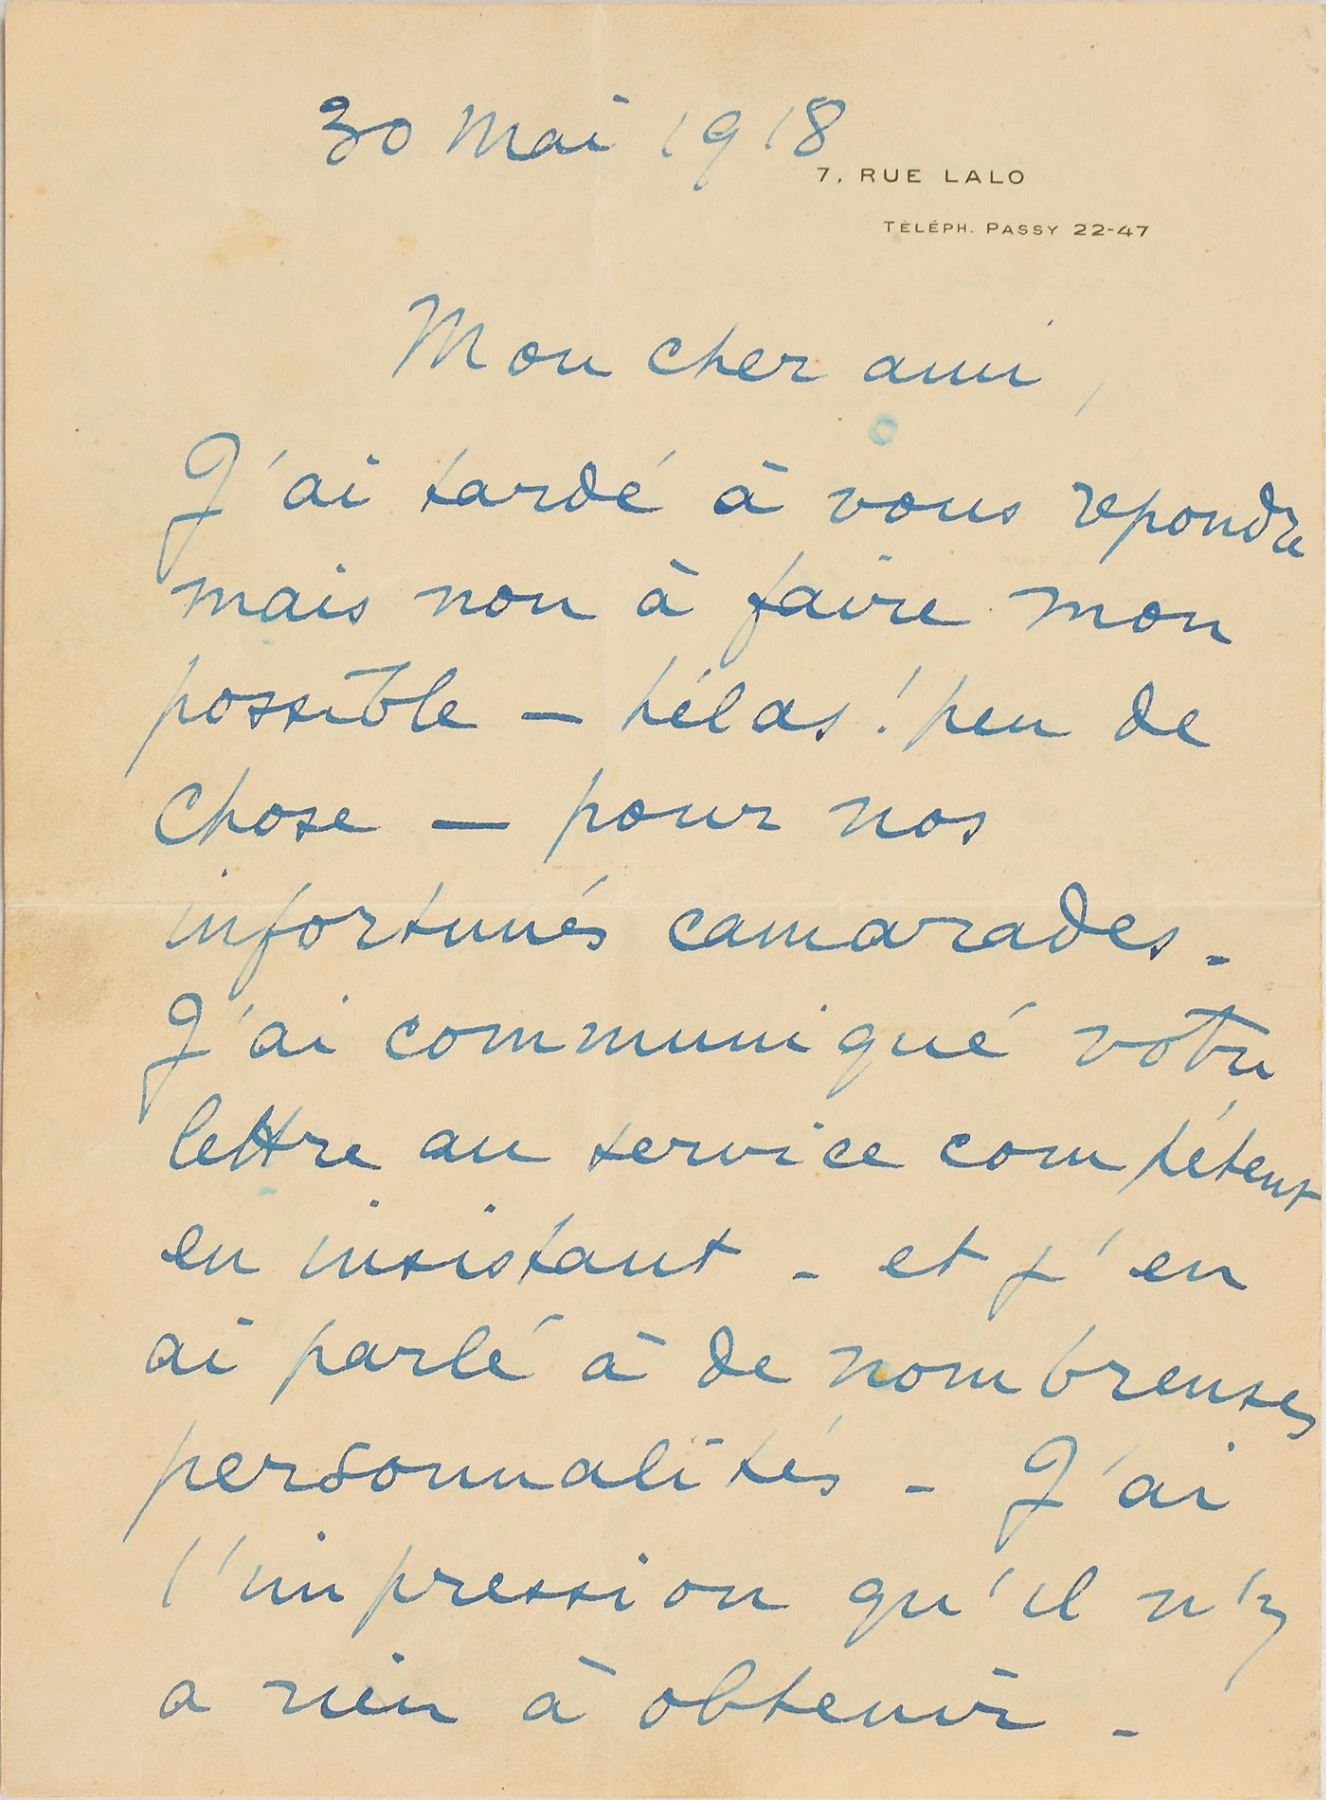 30 Mai 1918
7, RUE LALO
TÉLÉPH. PASSY 22-47
Mon cher ami,
J'ai tardé à vous repondre
mais non à faire mon
possible — hélas ! peu de
chose — pour nos
infortunés camarades -
J'ai communiqué votre
lettre au service compétent
en insistant - et j'en
ai parlé à de nombreuses
personnalités - J'ai
l'impression qu'il n'y
a rien à obtenir -